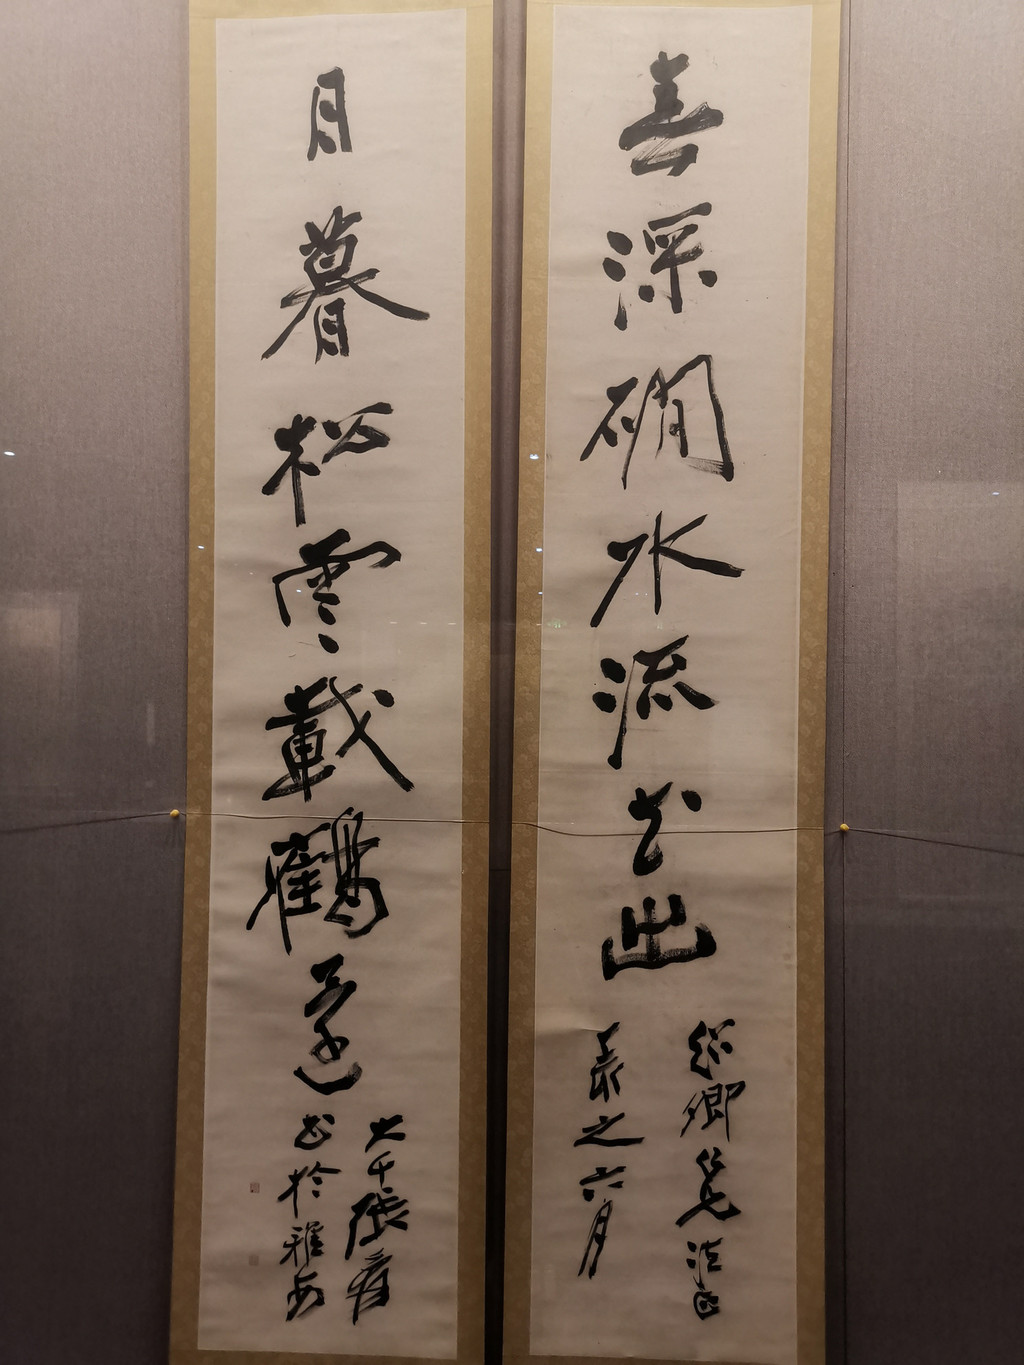 春深磵水流花出
紹卿仁兄法正
之六月
日暮松雲載鶴還
大千張爰
書於雅安